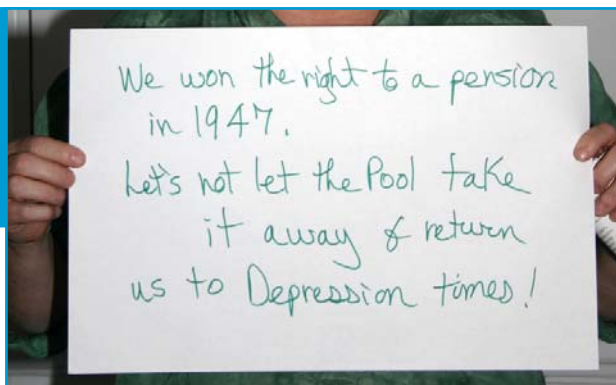 We won the right to a pension
in 1947.
Let's not let the Pool take
it away & return
us to Depression times!